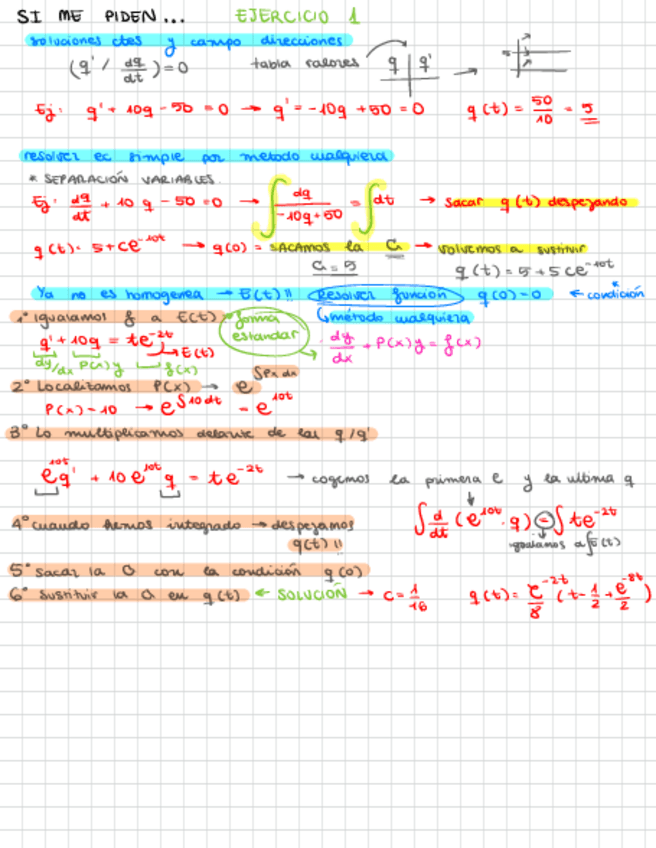 SI ME PIDEN... EJERCICIO 1
soluciones ctes y campo direcciones
(q' / dq/dt) = 0 tabla valores q | q' →
Ej: q' + 10q - 50 = 0 → q' = -10q + 50 = 0 q(t) = 50/10 = 5
resolver ec simple por metodo cualquiera
* SEPARACIÓN VARIABLES
Ej: dq/dt + 10 q - 50 = 0 → ∫ dq/-10q+50 = ∫ dt → sacar q(t) despejando
q(t) = 5 + ce^-10t → q(0) = SACAMOS la C → volvemos a sustituir
C = 5 q(t) = 5 + 5 c e^-10t
Ya no es homogenea → E(t)!! Resolver función q(0) = 0 ← condición
1º igualamos f a E(t) forma estandar método cualquiera
q' + 10q = te^-2t → E(t) dy/dx + P(x) y = f(x)
dy/dx P(x) y f(x)
2º Localizamos P(x) → e^∫Px dx
P(x) = 10 → e^∫10dt = e^10t
3º Lo multiplicamos delante de las q/q'
e^10t q' + 10 e^10t q = te^-2t → cogemos la primera e y la ultima q
4º cuando hemos integrado → despejamos q(t)!!
∫ d/dt (e^10t · q) = ∫ te^-2t
igualamos a ∫E(t)
5º sacar la C con la condición q(0)
6º sustituir la C en q(t) ← SOLUCIÓN → C = 1/16 q(t) = e^-2t/8 (t - 1/2 + e^-8t/2)